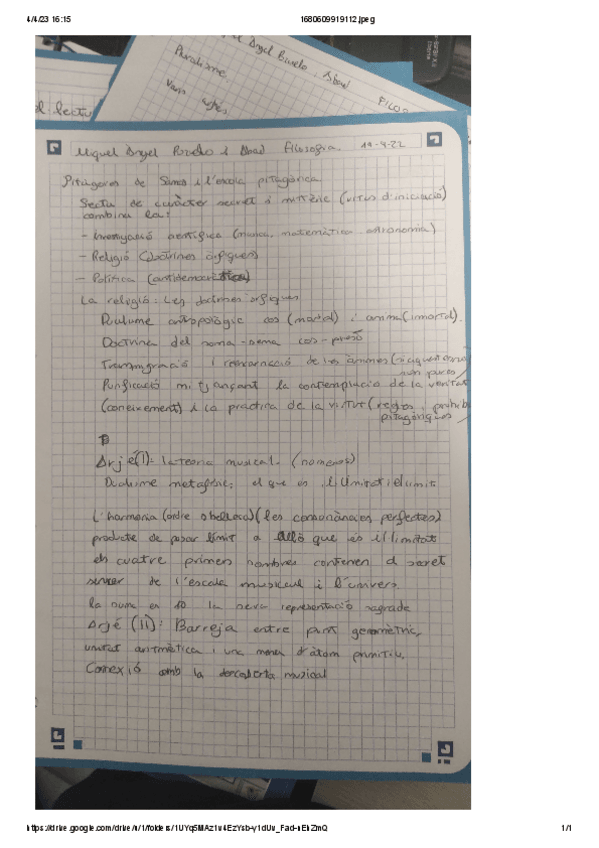 4/4/23 16:15
1680609919112.jpeg
Àngel Povelo i Abad
Pluralisme.
Varis
Miquel Àngel i Abad Filosofia. 19-4-22
Pitàgores de Samos i l'escola pitagòrica
Secta de caràcter secret i (ritus d'iniciació)
combina la:
- Investigació científica (musica, matemàtica, astronomia)
- Religió (doctrines òrfiques)
- Política
La religió: Les doctrines òrfiques
antropològic cos (mortal) i anima (inmortal).
Doctrina del soma-sema cos-presó
Transmigració i reencarnació de les ànimes (si aquestes no
son pures
Purificació mitjançant la contemplació de la veritat
(coneixement) i la practica de la virtut (regles,
pitagòriques
Arjé (I): la teoria musical. (nomeros)
metafísic, el que és il·limitat i el limit
L'harmonia (ordre o bellesa) (les consonàncies perfectes)
producte de posar límit a allò que és il·limitat
els cuatre primers nombres contenen el secret
sencer de l'escala musical i l'univers.
la suma es 10 la seva representació sagrada
Arjé (II): Barreja entre punt geomètric,
unitat aritmètica i una mena d'àtom primitiu.
Connexió amb la descoberta musical
1/1